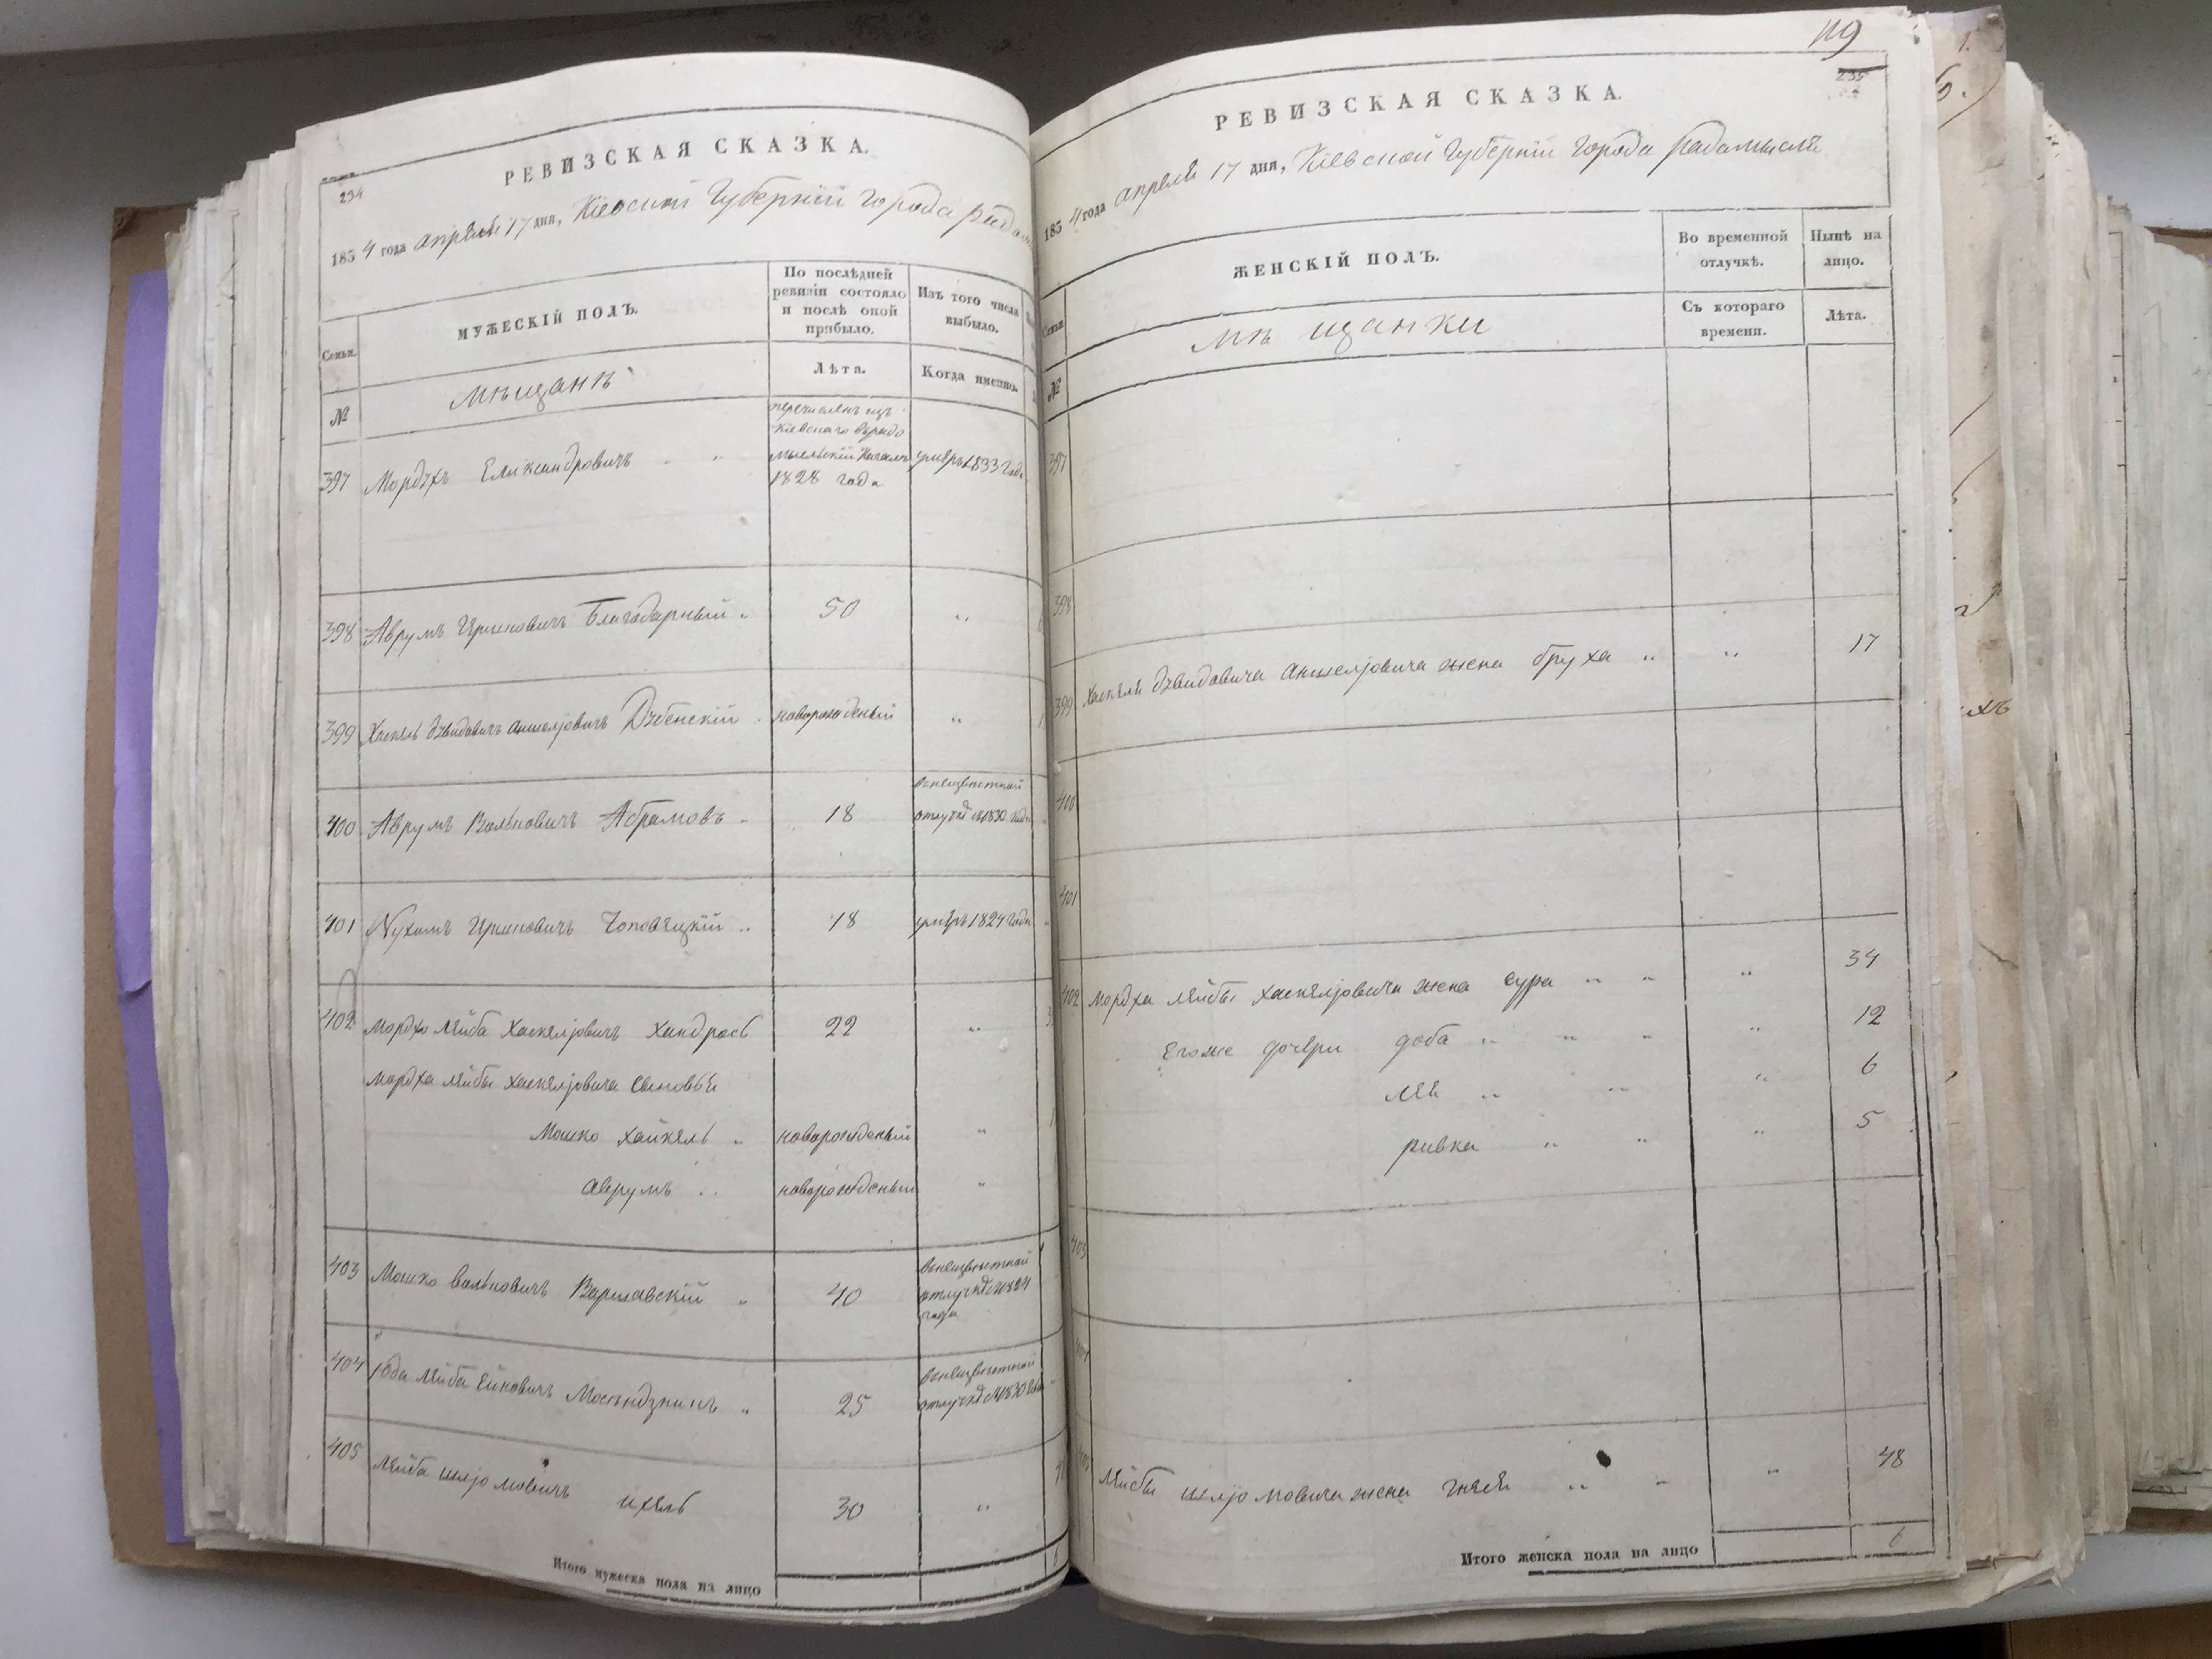 234
РЕВИЗСКАЯ СКАЗКА.
1854 года апреля 17 дня, Кіевской Губерніи города
Семьи.
МУЖЕСКІЙ ПОЛЪ.
По послѣдней ревизіи состояло и послѣ оной прибыло.
Изъ того числа выбыло.
№
Мѣщанѣ
Лѣта.
Когда именно.
397 Мордхъ Еликсандровичъ " "
перечисленъ изъ
Кіевскаго въ радо
мысльскій Кагалъ
1828 года
умеръ 1833 года
398 Аврумъ Ицковичъ Благодарный " 50 "
399 Хаскель Дзвидовичъ Аншелзовичъ Дзбенскій " новорожденый "
400 Аврумъ Вольковичъ Абрамовъ " 18
внеизвѣстной
отлучкѣ с 1830 года
401 Нухимъ Ицковичъ " 18 умеръ 1824 года
402 Мордхо Лейба Хаскелзовичъ Хандрось 22 "
Мордха Лейбы Хаскелзовича сыновья
Мошко Хайкель " новорожденый "
Аврумъ " новорожденый "
403 Мошко Вольковичъ Варшавскій " 40
внеизвѣстной
отлучкѣ с 1824
года
404 Іода Лейба " 25
внеизвѣстной
отлучкѣ с 1830 года
405 Лейба Шлзомовичъ Ихель 30 "
Итого мужеска пола на лицо
6
119
235
РЕВИЗСКАЯ СКАЗКА.
1854 года апреля 17 дня, Кіевской Губерніи города Радамысля
Семьи
ЖЕНСКІЙ ПОЛЪ.
Во временной отлучкѣ.
Нынѣ на лицо.
№
Мѣщанки
Съ котораго времени.
Лѣта.
397
398
399 Хаскеля Дзвидовича Аншелзовича жена Бруха " " 17
400
401
402 Мордха Лейбы Хаскелзовича жена Сура " " " 34
Егоже дочери Доба " " " " 12
Лея " " " 6
Ривка " " " 5
403
404
405 Лейбы Шлзомовича жена Гнеся " " " 48
Итого женска пола на лицо 6